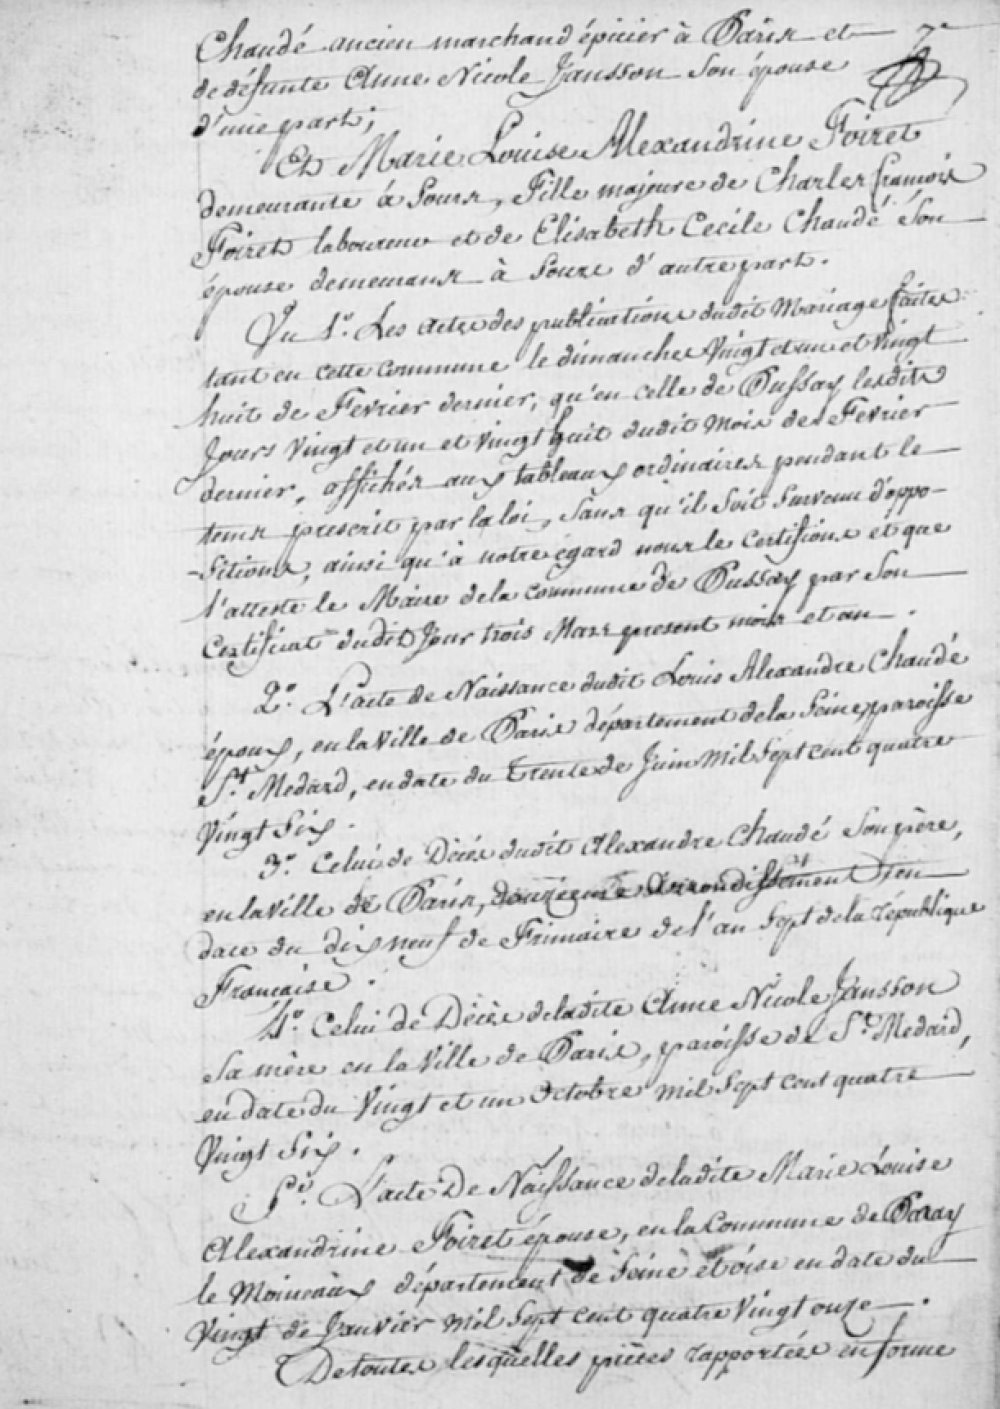 Chaudé ancien marchand épicier à Paris et 7e
de défunte Anne Nicole Jansson Son épouse
d'une part;
Et Marie Louise Alexandrine Foiret
demeurante à Sours, Fille majeure de Charles François
Foiret laboureur et de Elisabeth Cecile Chaudé Son
épouse demeurans à d'autre part.
Vu 1o. Les actes des publications dudit Mariage faites
tant en cette commune les dimanches Vingt et un et Vingt
huit de Fevrier dernier, qu'en celle de Pussay lesdits
Jours Vingt et un et Vingt huit dudit Mois de Fevrier
dernier, affichés aux tableaux ordinaires pendant le
tems prescrit par la loi, Sans qu'il Soit Survenu d'oppo-
-Sitions, ainsi qu'à notre égard nous le Certifions et que
l'atteste le Maire de la Commune de Pussay par Son
Certificat dudit Jour trois Mars présent mois et an.
2o. L'acte de Naissance dudit Louis Alexandre Chaudé
époux, en la Ville de Paris département de la Seine, paroisse
St. Medard, en date du Trente de Juin Mil Sept cent quatre
Vingt Six.
3o. Celui de Décès dudit Alexandre Chaudé Son père,
en la Ville de Paris, douzième Arrondissement en
date du dix neuf de Frimaire de l'an Sept de la république
Française.
4o. Celui de Décès de ladite Anne Nicole Jansson
Sa mère en la Ville de Paris, paroisse de St. Medard,
en date du Vingt et un Octobre Mil Sept cent quatre
Vingt Six.
5o. L'acte De Naissance de ladite Marie Louise
Alexandrine Foiret épouse, en la Commune de Paray
le Moineaux département de Seine et oise en date du
Vingt de Janvier Mil Sept cent quatre Vingt onze.
De toutes lesquelles pièces rapportées en forme